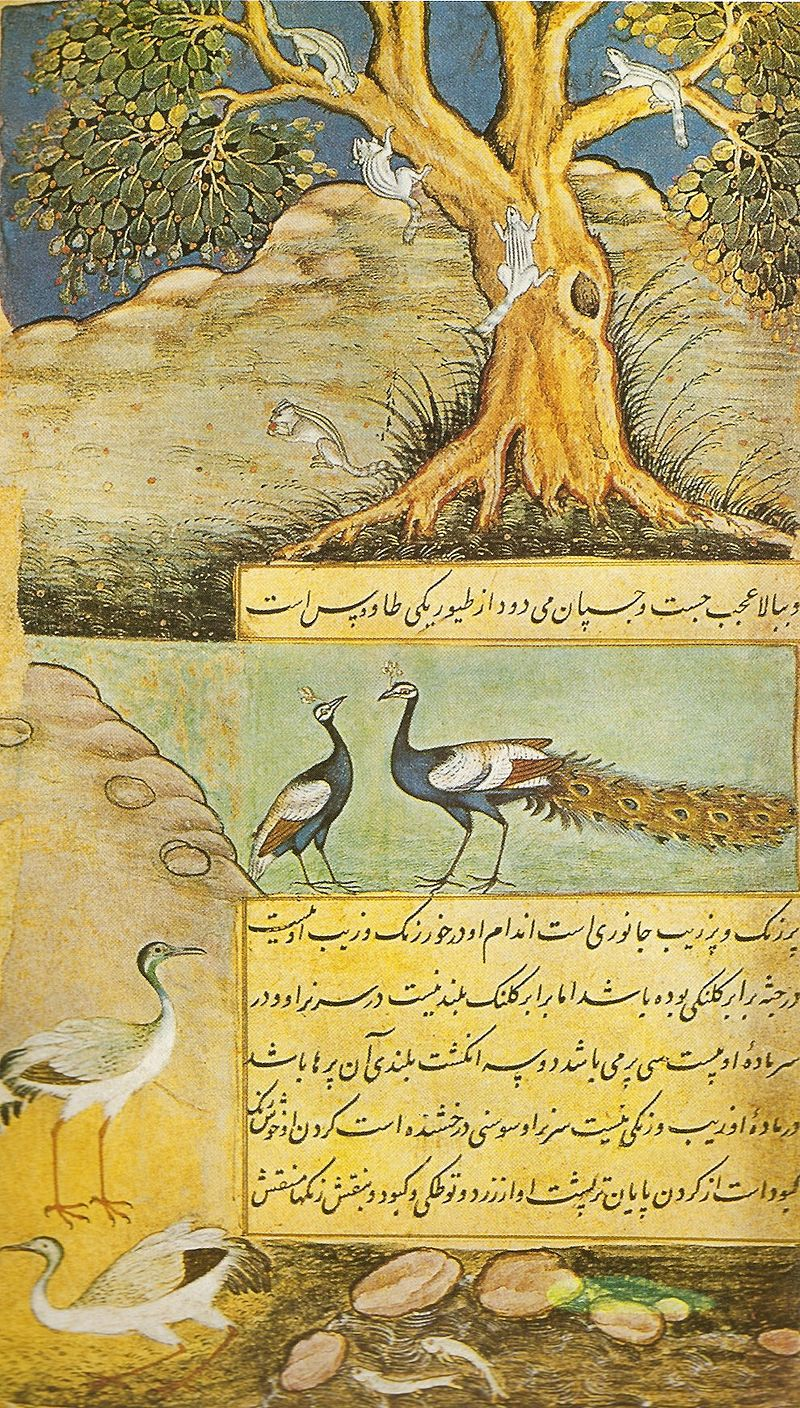 و ببالا عجب جست و چسپان می دود از طیور یکی طاوس است
پررنک و پرزیب جانوری است اندام او درخور رنک و زیب او نیست
در جثه برابر کلنکی بوده باشد اما برابر کلنک بلند نیست در سر نر او و در
سر مادهٔ او بیست سی پر می باشد دو سه انکشت بلندی آن پرها باشد
در مادهٔ او زیب و رنکی نیست سر نر او سوسنی درخشنده است کردن او خوش رنک
کبود است از کردن پایان تر پشت او از زرد و طوطکی و کبود و بنفش رنکها منقش